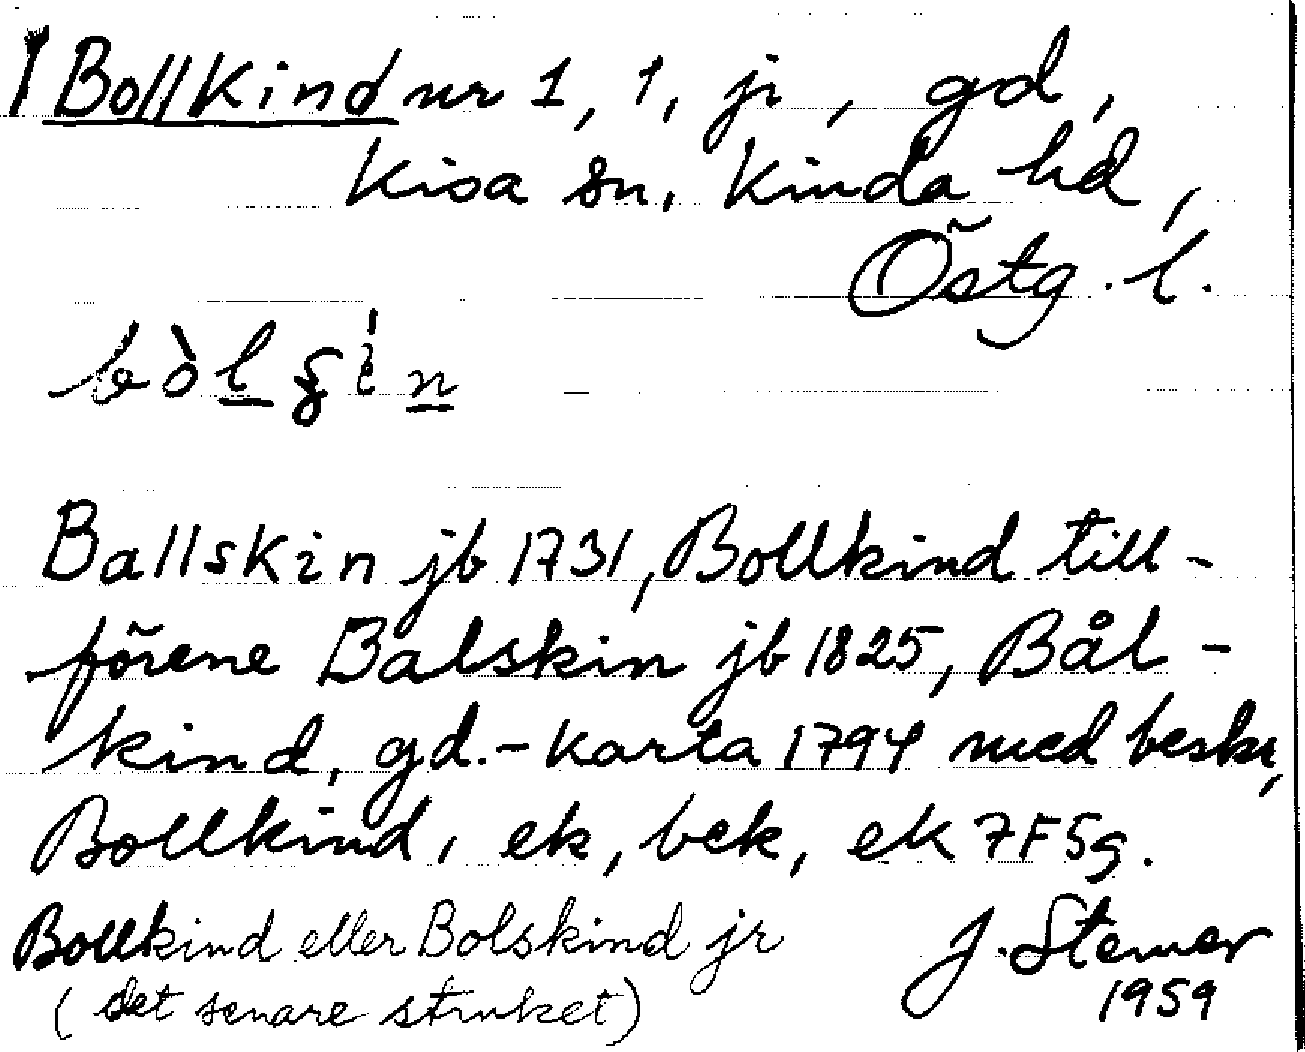 Bollkind nr 1, 1, ji, gd,
Kisa sn, Kinda hd,
Östg. l.
Ballskin jb 1731, Bollkind till-
förene Balskin jb 1825, Bål-
kind, gd.-karta 1794 med beskr,
Bollkind, ek, bek, ek 7F5g.
Bollkind eller Bolskind jr
(det senare struket)
J. Stemer
1959